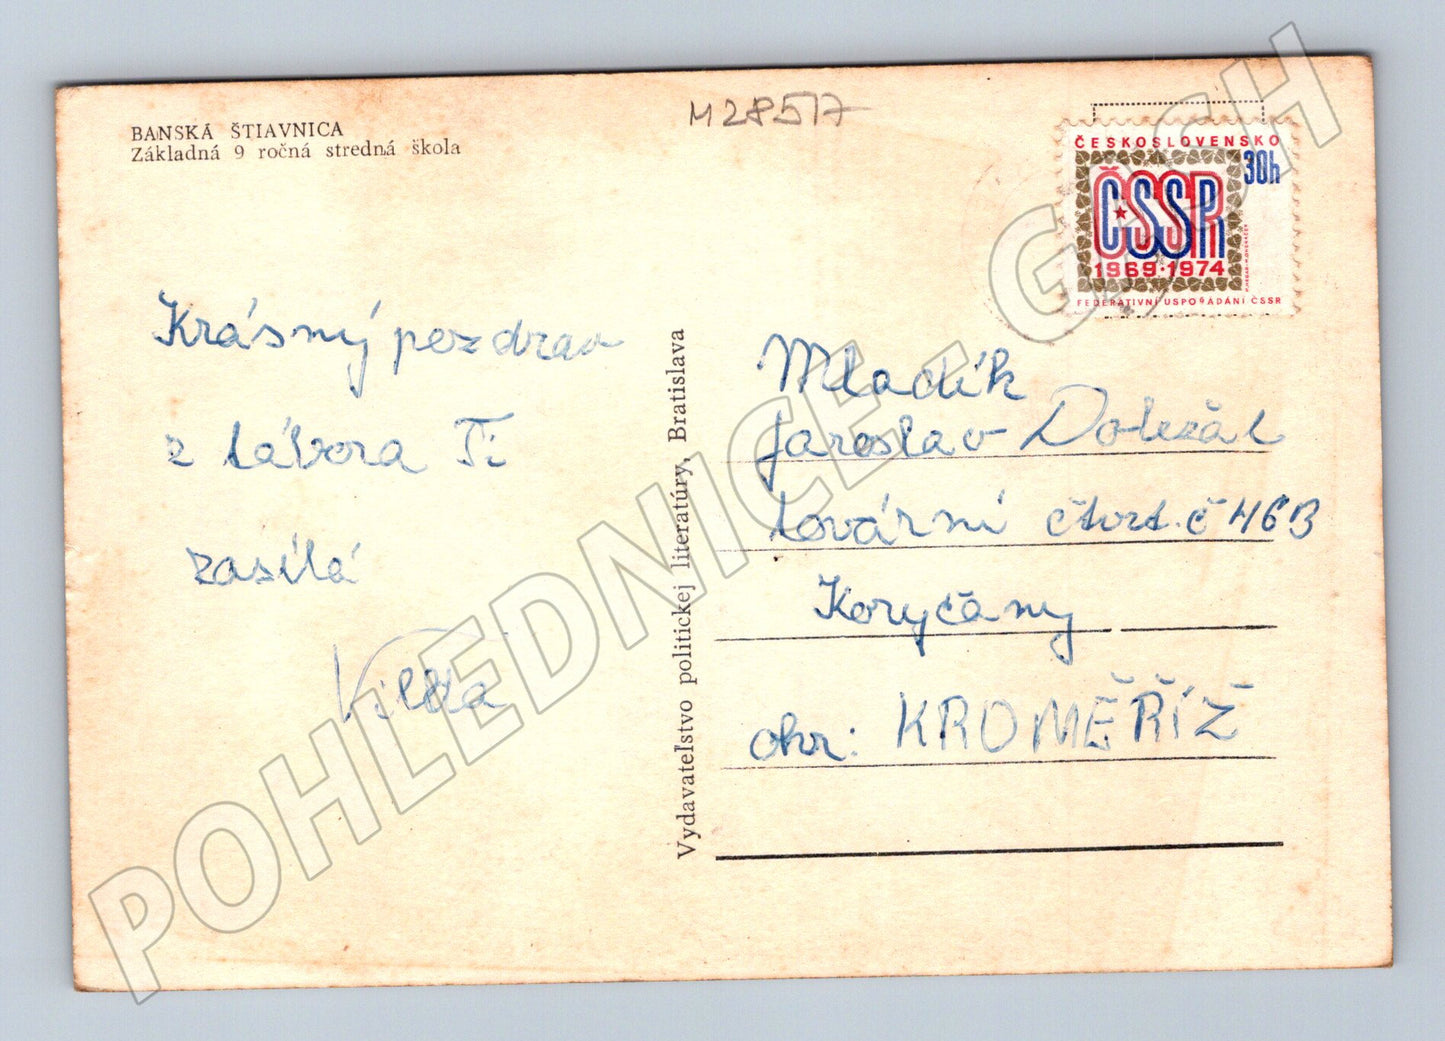 BANSKÁ ŠTIAVNICA
Základná 9 ročná stredná škola
M28517
ČESKOSLOVENSKO
30h
ČSSR
1969·1974
FEDERATIVNÍ USPOŘÁDÁNÍ ČSSR
Krásný pozdrav
z tábora Ti
zasílá
Vydavateľstvo politickej literatúry, Bratislava
Mladík
Jaroslav Doležal
tovární čtvrt. č 46B
Koryčany
okr: KROMĚŘÍŽ
POHLEDNICE - GBSH